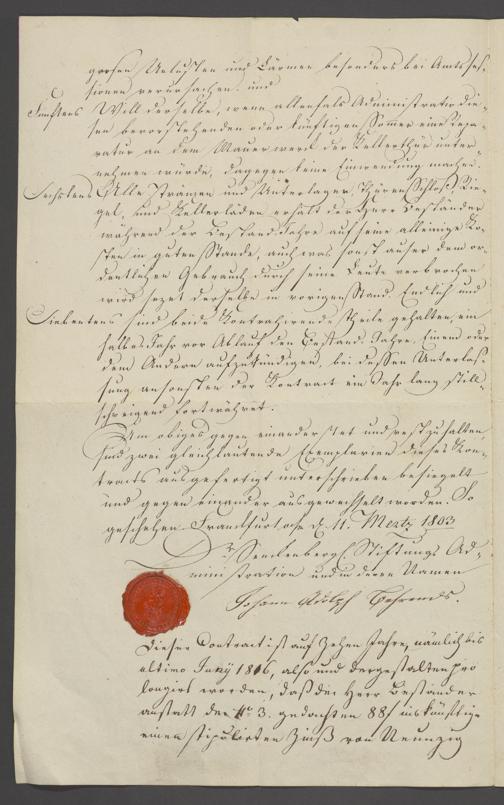 großen Unlusten und Lärmen besonders bei Amts Ses-
sionen verursachen. und
Fünftens Will derselbe, wenn allenfals Administratio die-
sen bevorstehenden oder künftigen Somer eine Repa-
ratur an dem Mauerwerck der Kellerthür unter-
nehmen würde, dagegen keine Einwendung machen.
Sechstens Alle Främen und Unterlager, Thüren Schloß, Rie-
gel, und Kellerläden erhält der Herr Beständer
während der Bestand-Jahre auf seine alleinige Ko-
sten in guten Stande, auch was sonst auser dem or-
dentlichen Gebrauch durch seine Leute verbrochen
wird sezet derselbe in vorigen Stand. Endlich und
Siebentens sind beide Kontrahirende Theile gehalten, ein
halbes Jahr vor Ablauf den Bestand Jahre, Einend oder
dem Andern aufzukündigen, bei dessen Unterlas-
sung ansonsten der Kontract ein Jahr lang still-
schweigend fortwähret.
Um obiges gegen einander stet und vest zu halten,
sind zwei gleichlautende Exemplarien dieses Kon-
tracts ausgefertigt unterschrieben besiegelt
und gegen einander ausgewechselt worden. So
geschehen Franckfurt d. 11. Mertz 1803
Dr. Senckenbergl. Stiftungs Ad-
ministration und in deren Namen
Johann Adolph Behrends.
Dieser Contract ist auf Zehen Jahre, nämlich bis
ultimo Juny 1816, also und dergestalten pro
longirt worden, daß der Herr Beständer
anstatt der No. 3. gedachten 88f ins künftige
einen stipulirten Zinß von Neunzig